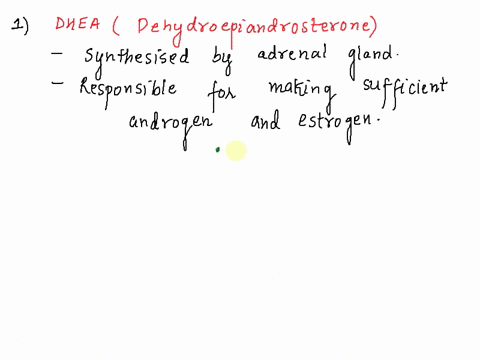 1) DHEA ( Dehydroepiandrosterone)
- Synthesised by adrenal gland.
- Responsible for making sufficient
androgen and estrogen.